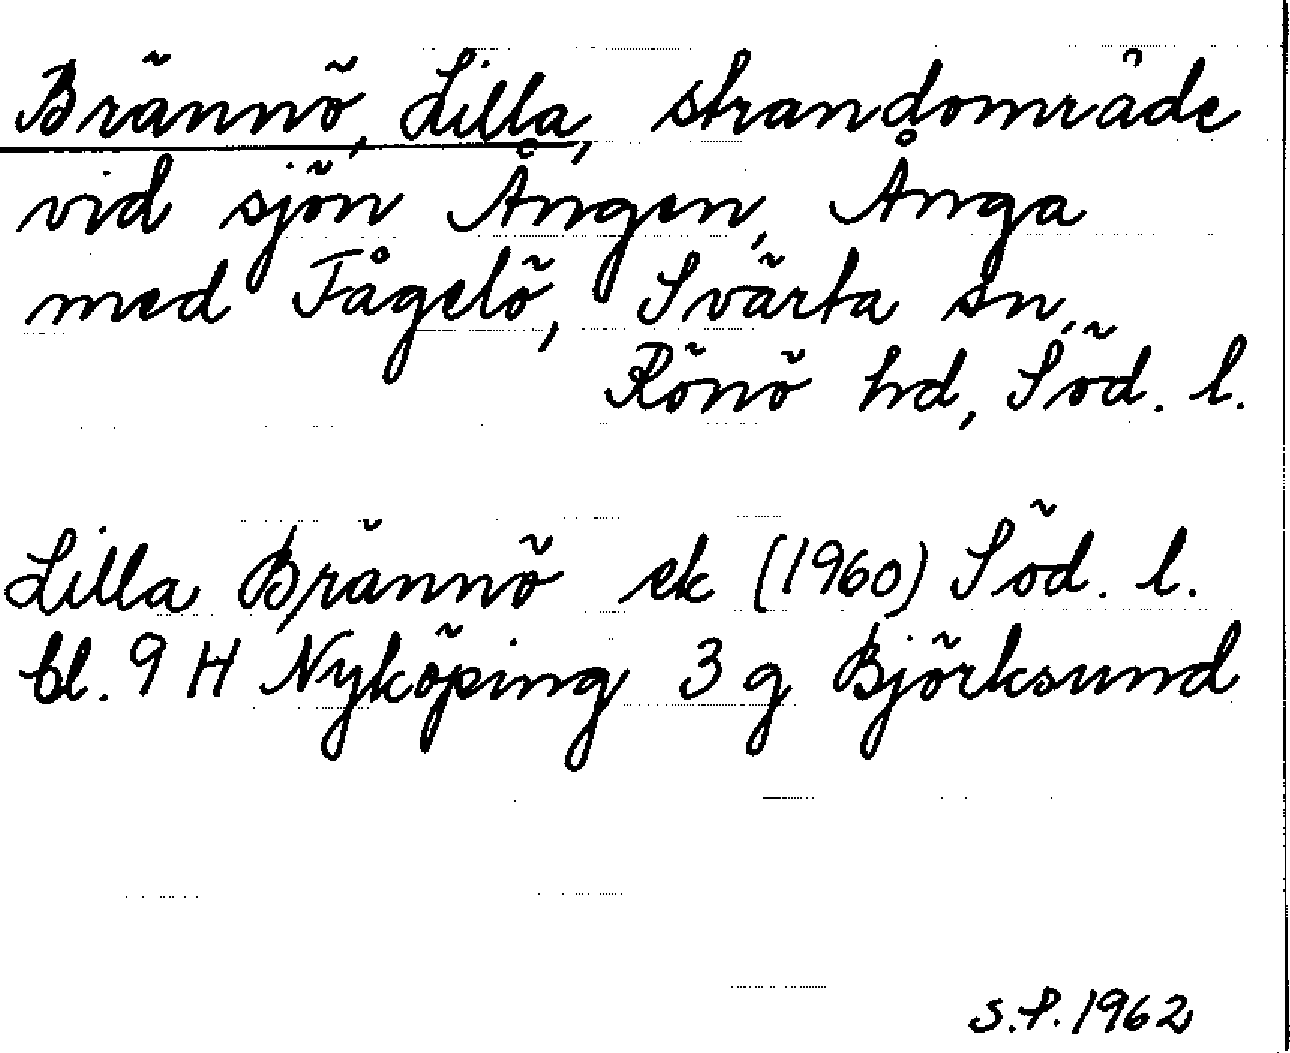 Brännö, Lilla, strandområde
vid sjön Ången, Ånga
med Fågelö, Svärta sn,
Rönö hd, Söd. l.
Lilla Brännö ek (1960) Söd. l.
bl. 9 H Nyköping 3 g Björksund
S.P. 1962